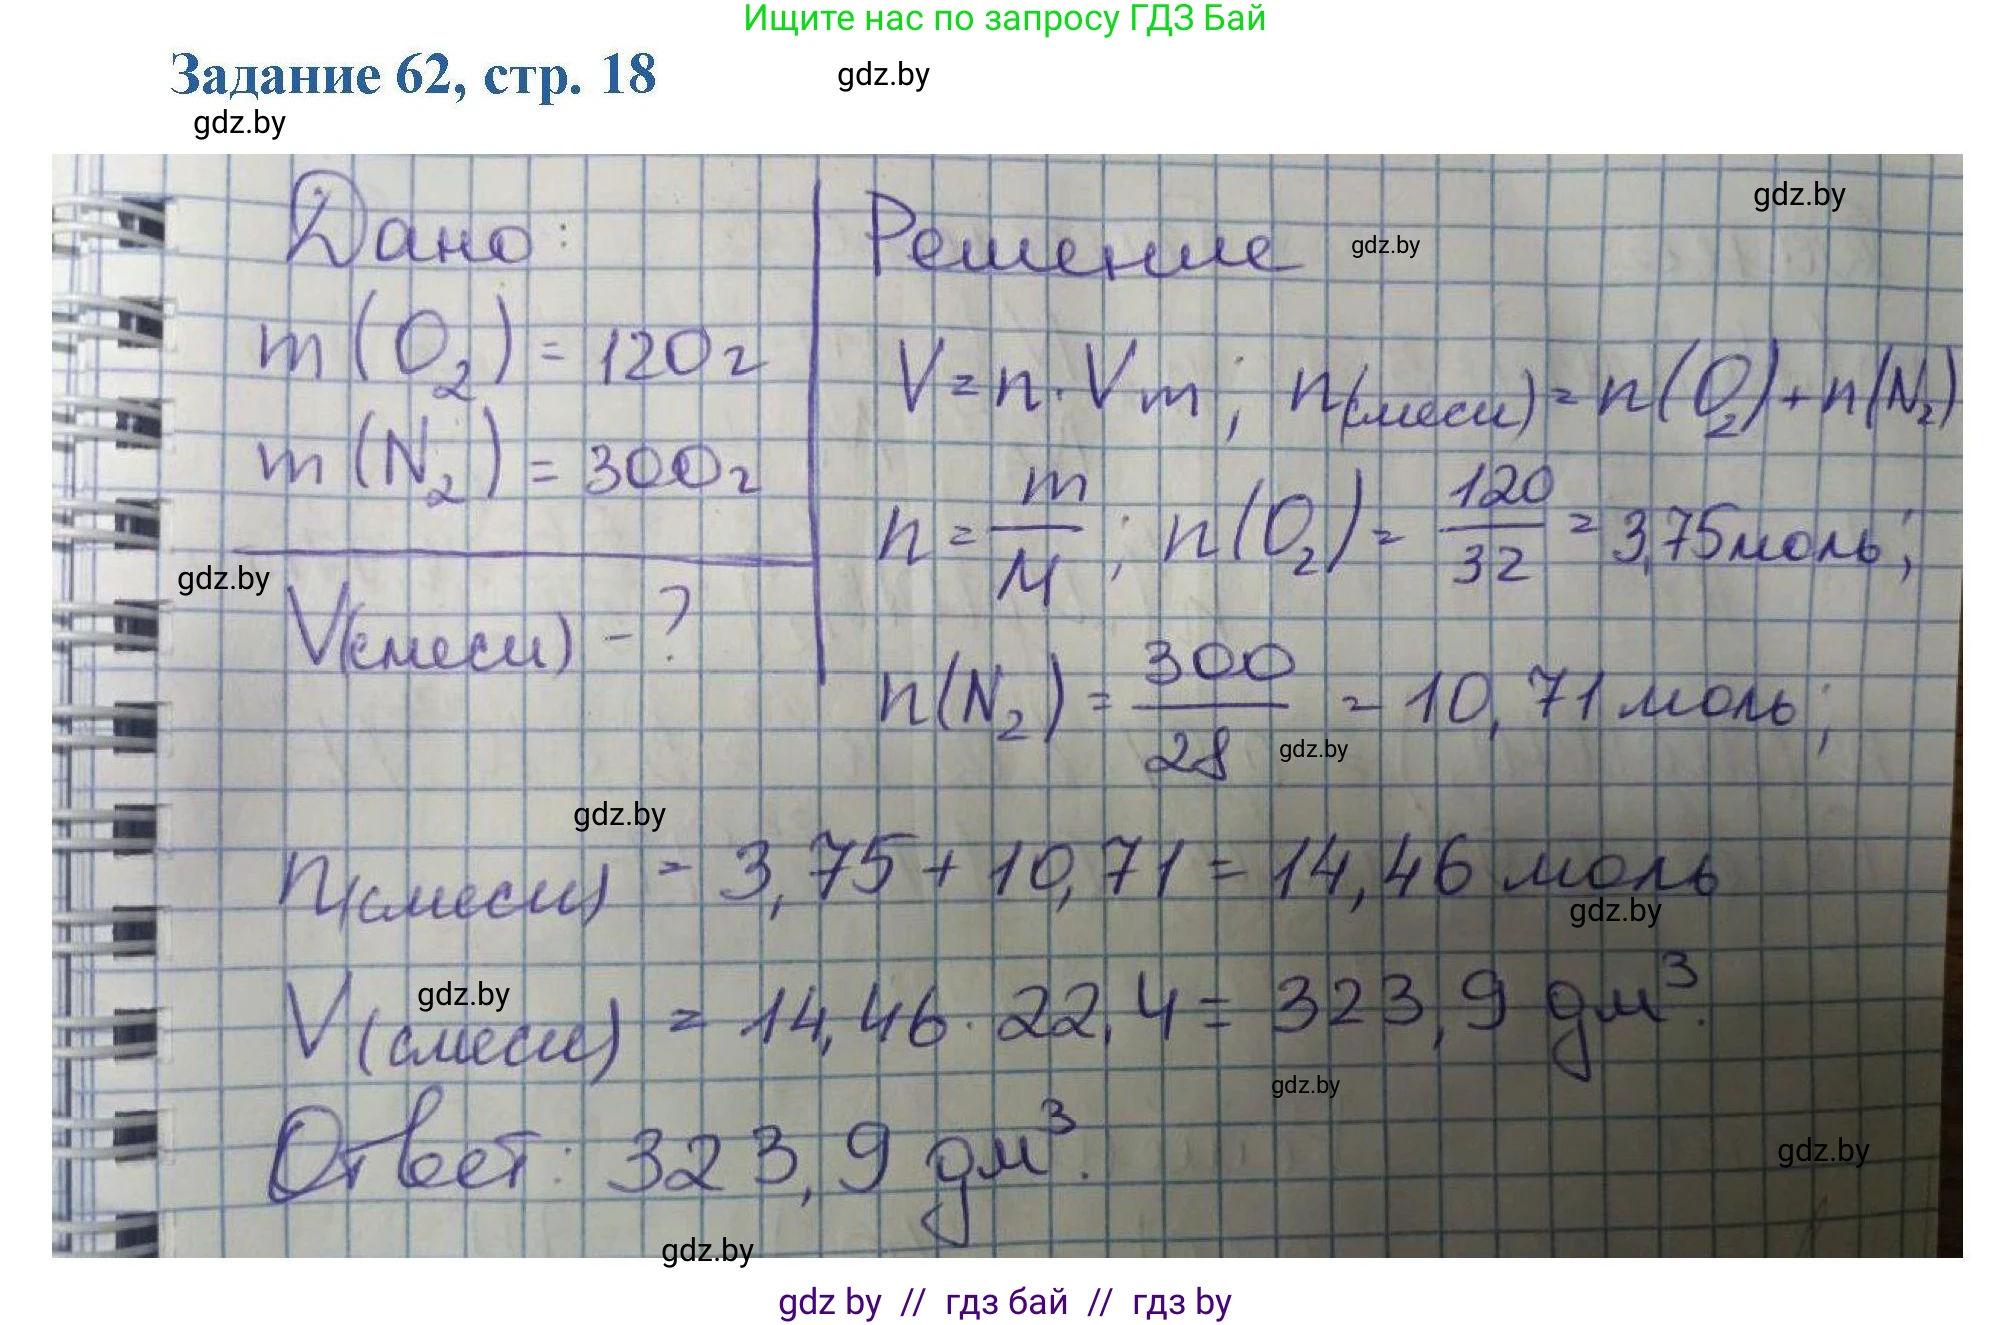 Ищите нас по запросу ГДЗ Бай
Задание 62, стр. 18
gdz.by
gdz.by
Дано:
m(O₂) = 120г
m(N₂) = 300г
gdz.by
V(смеси) - ?
Решение
gdz.by
gdz.by
V = n · Vm; n(смеси) = n(O₂) + n(N₂)
n = m/M; n(O₂) = 120/32 = 3,75 моль;
n(N₂) = 300/28 = 10,71 моль;
gdz.by
gdz.by
n(смеси) = 3,75 + 10,71 = 14,46 моль
gdz.by
gdz.by
V(смеси) = 14,46 · 22,4 = 323,9 дм³.
gdz.by
Ответ: 323,9 дм³.
gdz.by
gdz.by
gdz by // гдз бай // гдз by